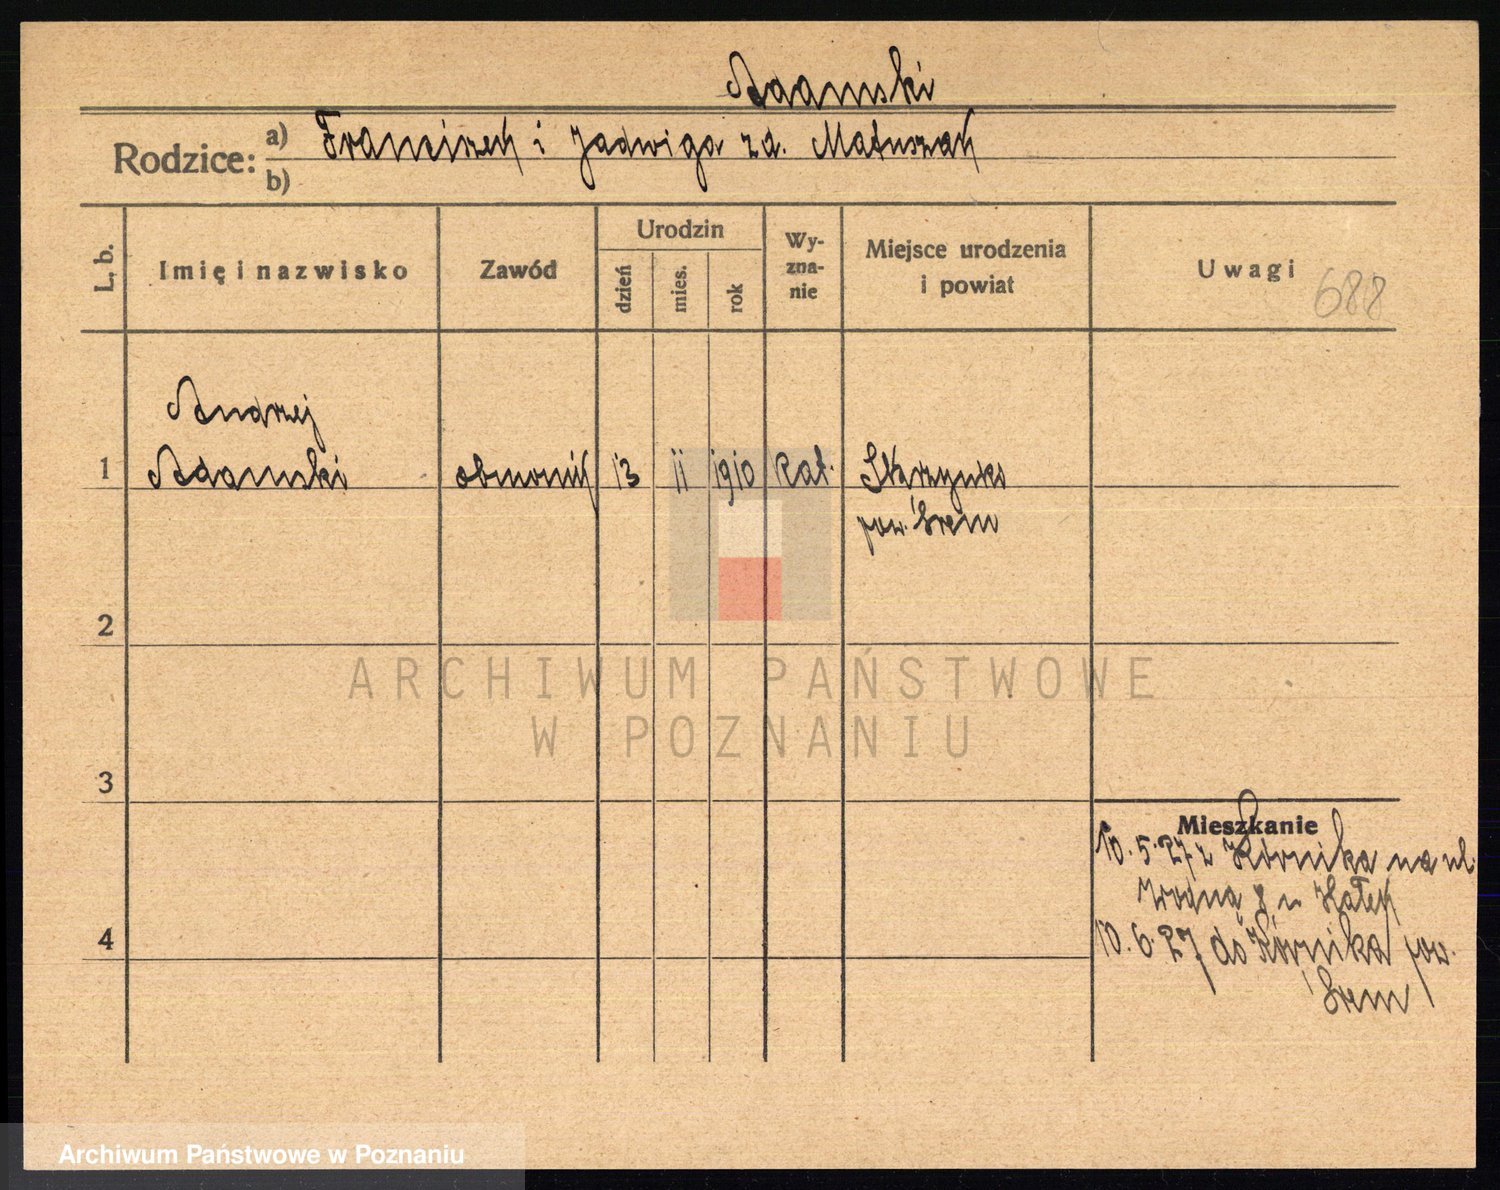 Adamski
Rodzice: a) Franciszek i Jadwiga zd. Matuszak
b)
L. b.
Imię i nazwisko
Zawód
Urodzin
dzień
mies.
rok
Wy-
zna-
nie
Miejsce urodzenia
i powiat
Uwagi
688
Andrzej
1 Adamski 13 11 1910 kat. Skrzynki
pow. Śrem
2
3
4
Mieszkanie
10.5.27 z Kórnika na ul.
Wodną 8
10.6.27 do Kórnika pow.
Śrem
ARCHIWUM PAŃSTWOWE
W POZNANIU
Archiwum Państwowe w Poznaniu